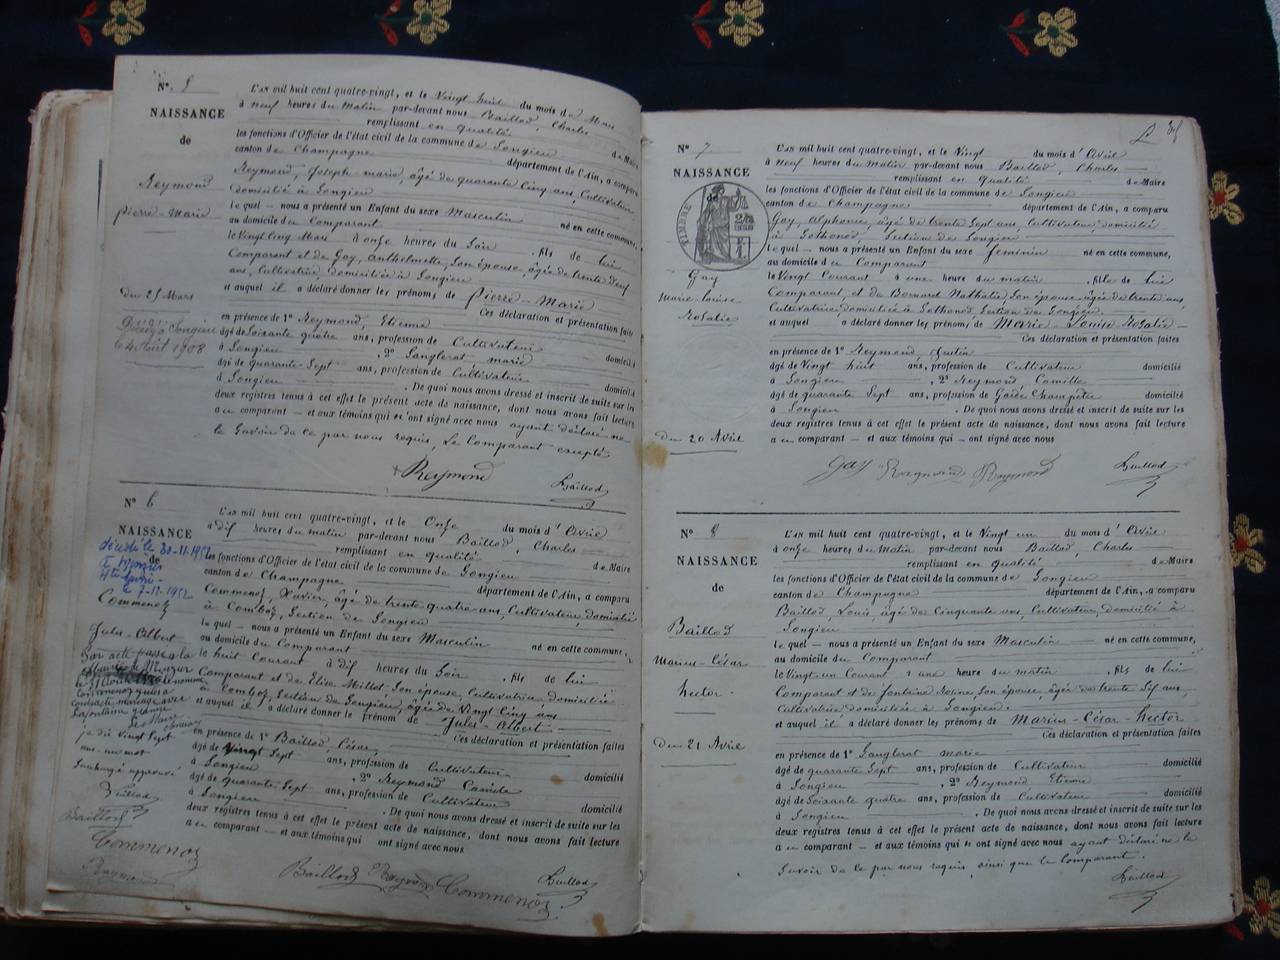 N°. 5
NAISSANCE
de
Reymond
Pierre-Marie
Du 25 Mars
Décédé à Songieu
le 4 Août 1908
L'AN mil huit cent quatre-vingt, et le Vingt huit du mois de Mars
à neuf heures du matin par-devant nous Baillod, Charles
remplissant en qualité de Maire
les fonctions d'Officier de l'état civil de la commune de Songieu
canton de Champagne département de l'Ain, a comparu
Reymond, Joseph-marie, âgé de quarante cinq ans, Cultivateur
domicilié à Songieu
le quel – nous a présenté un Enfant du sexe Masculin né en cette commune,
au domicile du Comparant
le Vingt cinq Mars à onze heures du Soir, fils de lui
Comparant et de Gay, Anthelmette, Son épouse, âgée de trente neuf
ans, Cultivatrice, domiciliée à Songieu
et auquel il a déclaré donner les prénoms de Pierre-Marie
Ces déclaration et présentation faites
en présence de 1° Reymond, Etienne
âgé de Soixante quatre ans, profession de Cultivateur domicilié
à Songieu , 2° Sanglerat marie
âgé de quarante Sept ans, profession de Cultivateur domicilié
à Songieu . De quoi nous avons dressé et inscrit de suite sur les
deux registres tenus à cet effet le présent acte de naissance, dont nous avons fait lecture
au comparant – et aux témoins qui n'ont signé avec nous ayant déclaré ne
le Savoir de ce par nous requis, Le Comparant excepté
Reymond Baillod
N° 6
NAISSANCE
de
décédé le 30-11-1952
le 7-12-1952
Commenoz
Jules-Albert
Par acte passé à la
L'AN mil huit cent quatre-vingt, et le Onze du mois d'Avril
à dix heures du matin par-devant nous Baillod, Charles
remplissant en qualité de Maire
les fonctions d'Officier de l'état civil de la commune de Songieu
canton de Champagne département de l'Ain, a comparu
Commenoz, Xavier, âgé de trente quatre ans, Cultivateur, domicilié
à Comboz, Section de Songieu
le quel – nous a présenté un Enfant du sexe Masculin né en cette commune,
au domicile du Comparant
le huit Courant à dix heures du Soir, fils de lui
Comparant et de Elise Millet, Son épouse, Cultivatrice, domiciliée
à Comboz, Section de Songieu, âgée de Vingt Cinq ans
et auquel il a déclaré donner le prénom de Jules-Albert
Ces déclaration et présentation faites
en présence de 1° Baillod, César
âgé de Vingt Sept ans, profession de Cultivateur domicilié
à Songieu , 2° Reymond Camille
âgé de quarante Sept ans, profession de Cultivateur domicilié
à Songieu . De quoi nous avons dressé et inscrit de suite sur les
deux registres tenus à cet effet le présent acte de naissance, dont nous avons fait lecture
au comparant – et aux témoins qui ont signé avec nous
Baillod Reymond Commenoz Baillod
je dis Vingt Sept
ans un mot
Surchargé approuvé
Baillod
Baillod
Commenoz
Reymond
N° 7
NAISSANCE
de
TIMBRE
Gay
Marie-Louise
Rosalie
Du 20 Avril
L'AN mil huit cent quatre-vingt, et le Vingt du mois d'Avril
à neuf heures du matin par-devant nous Baillod, Charles
remplissant en Qualité de Maire
les fonctions d'Officier de l'état civil de la commune de Songieu
canton de Champagne département de l'Ain, a comparu
Gay, Alphonse, âgé de trente Sept ans, Cultivateur domicilié
à Sothonod, Section de Songieu
le quel – nous a présenté un Enfant du sexe féminin né en cette commune,
au domicile du Comparant
le Vingt Courant à une heure du matin, fille de lui
Comparant, et de Bornard Nathalie, Son épouse âgée de trente ans
Cultivatrice, domiciliée à Sothonod, Section de Songieu
et auquel a déclaré donner les prénoms de Marie-Louise-Rosalie
Ces déclaration et présentation faites
en présence de 1° Reymond, Justin
âgé de Vingt huit ans, profession de Cultivateur domicilié
à Songieu , 2° Reymond Camille
âgé de quarante Sept ans, profession de Garde Champêtre domicilié
à Songieu . De quoi nous avons dressé et inscrit de suite sur les
deux registres tenus à cet effet le présent acte de naissance, dont nous avons fait lecture
au comparant – et aux témoins qui – ont signé avec nous
Gay Reymond Reymond Baillod
N° 8
NAISSANCE
de
Baillod
Marius-César
hector.
Du 21 Avril
L'AN mil huit cent quatre-vingt, et le Vingt un du mois d'Avril
à onze heures du Matin par-devant nous Baillod, Charles
remplissant en qualité de Maire
les fonctions d'Officier de l'état civil de la commune de Songieu
canton de Champagne département de l'Ain, a comparu
Baillod, Louis, âgé de Cinquante ans, Cultivateur, domicilié à
Songieu
le quel – nous a présenté un Enfant du sexe Masculin né en cette commune,
au domicile du Comparant
le Vingt-un Courant à une heure du matin, fils de lui
Comparant et de fontaine Roline, Son épouse, âgée de trente Six ans
Cultivatrice domiciliée à Songieu.
et auquel il a déclaré donner les prénoms de Marius-César-hector
Ces déclaration et présentation faites
en présence de 1° Sanglerat marie
âgé de quarante Sept ans, profession de Cultivateur domicilié
à Songieu , 2° Reymond Etienne
âgé de Soixante quatre ans, profession de Cultivateur domicilié
à Songieu . De quoi nous avons dressé et inscrit de suite sur les
deux registres tenus à cet effet le présent acte de naissance, dont nous avons fait lecture
au comparant – et aux témoins qui n'ont signé avec nous ayant déclaré ne le
Savoir de ce par nous requis, ainsi que le Comparant.
Baillod